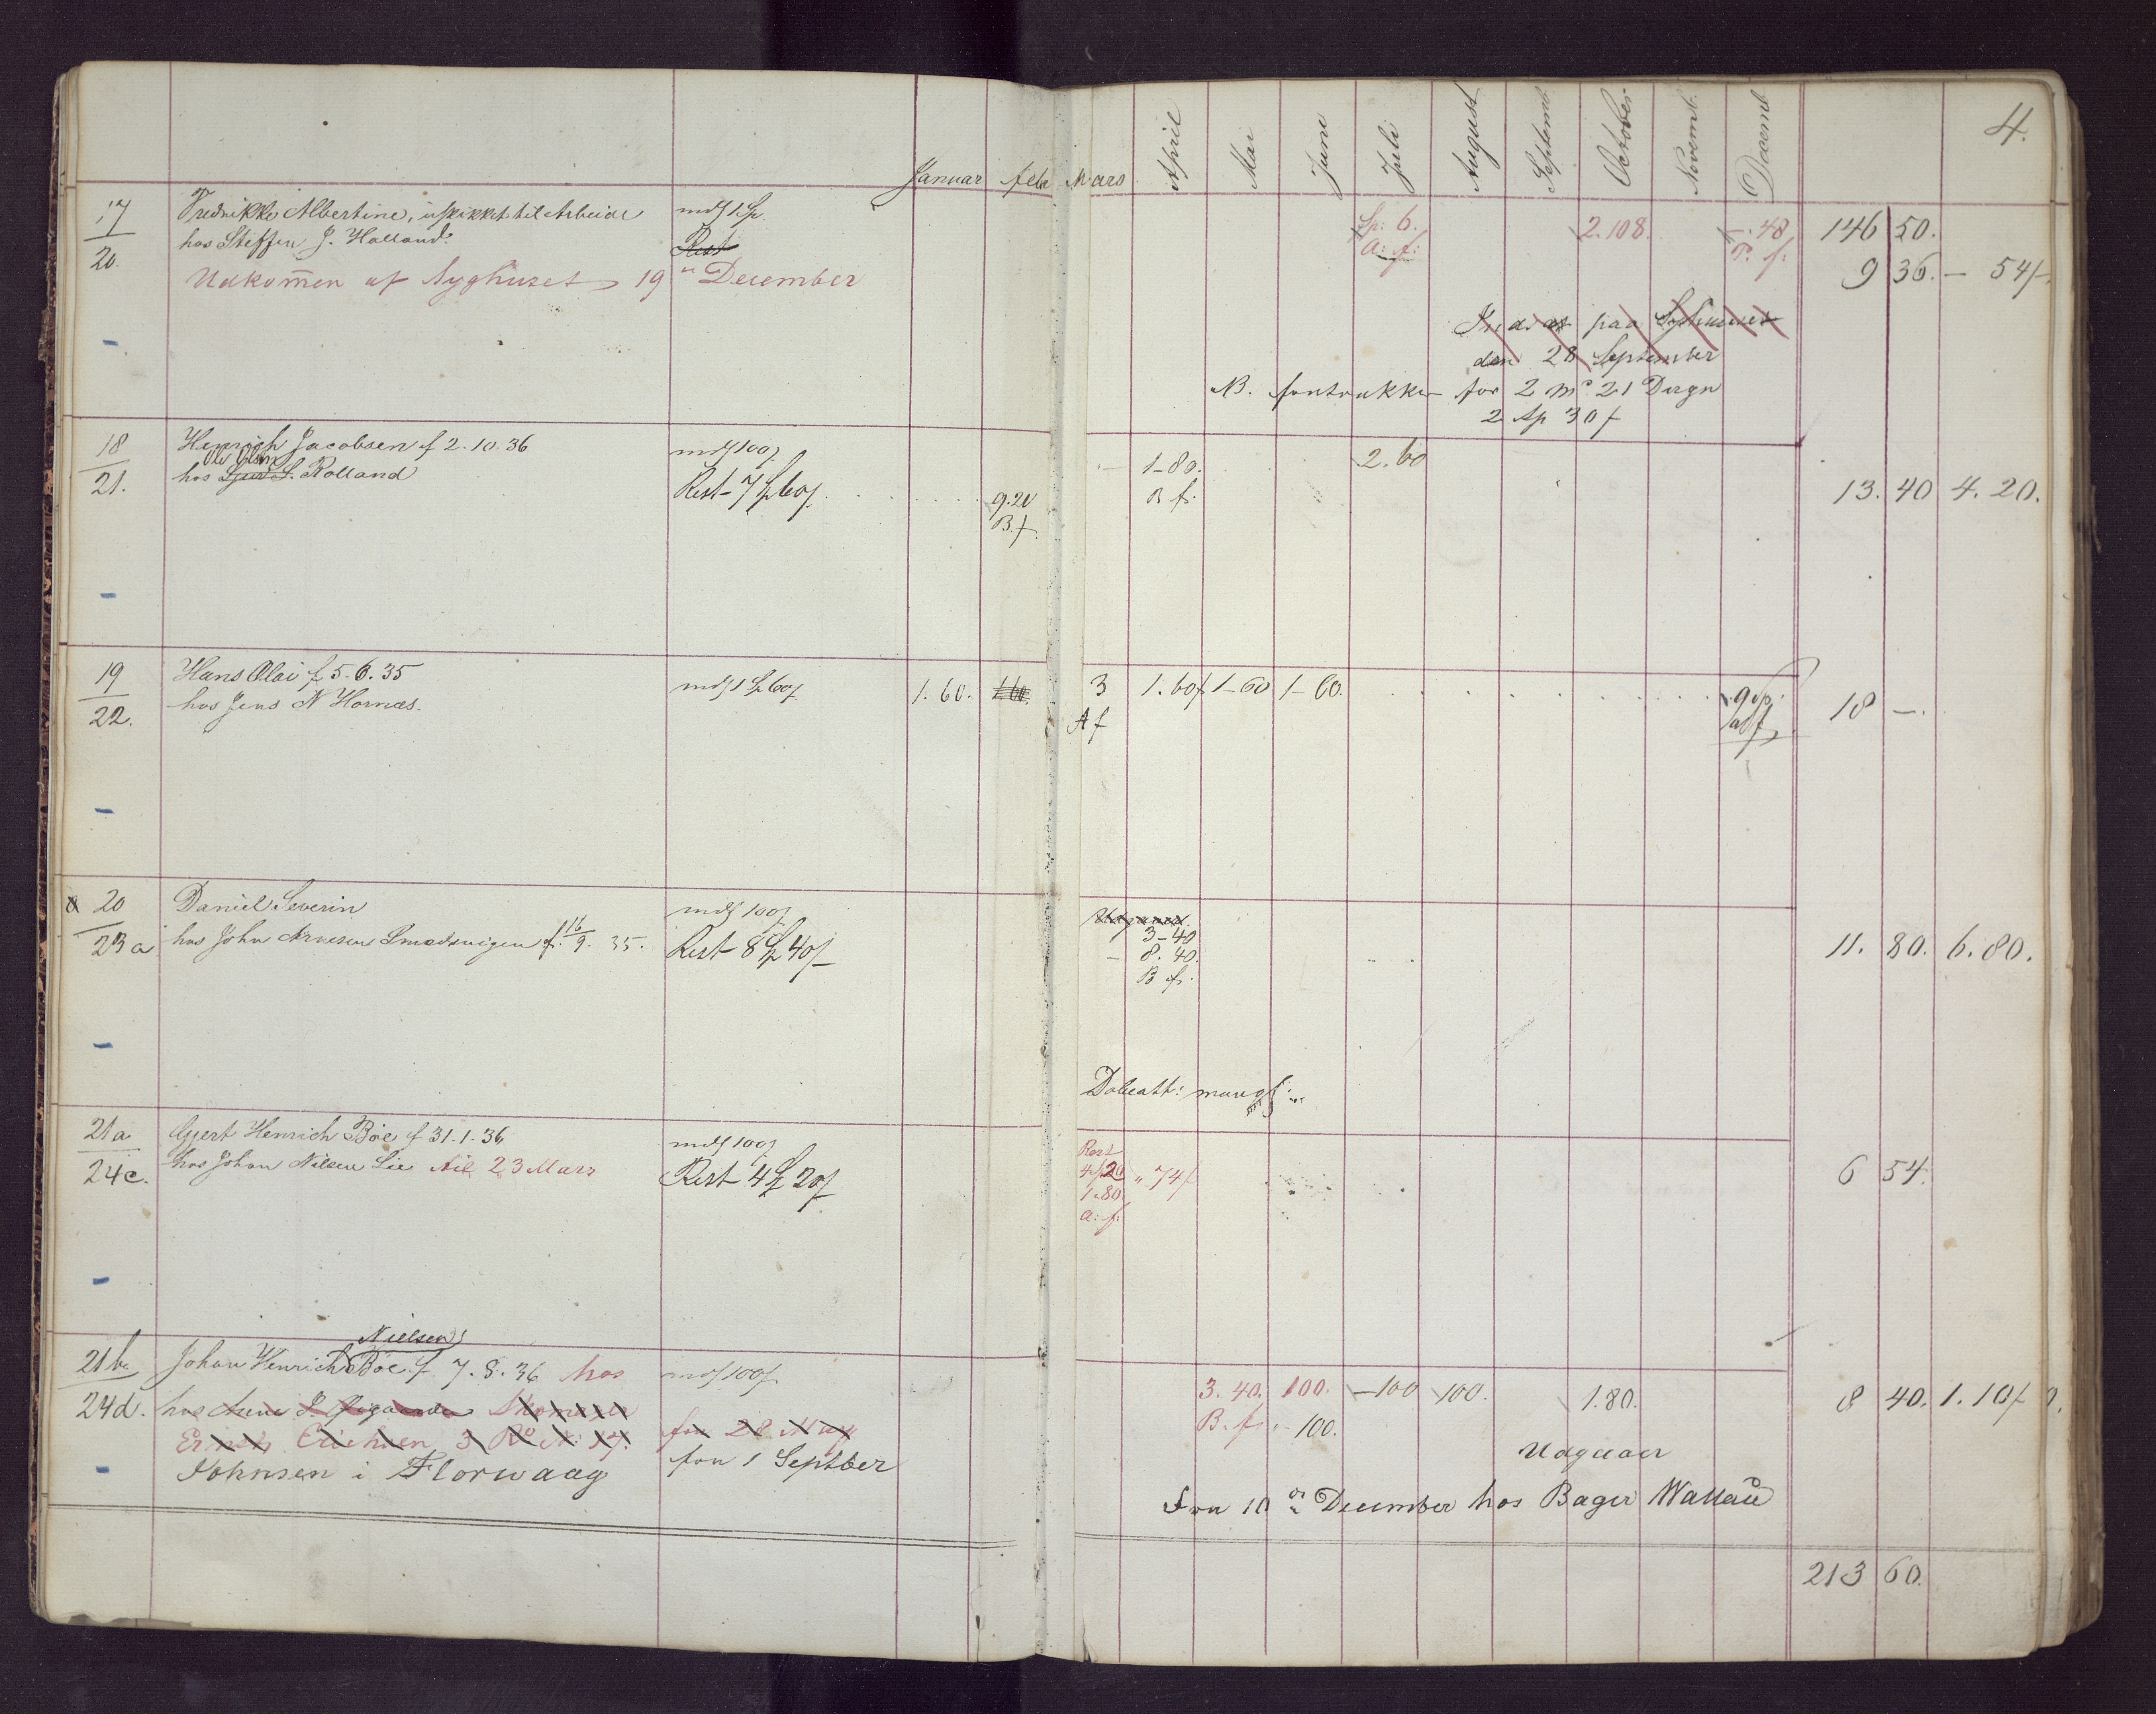 Januar febr Mars April Mai Juni Juli August Septemb October Novemb. Decemb 4.
17 Fredrikke Albertine, uskikket til Arbeide mdl 1 Sp. Sp: 6. 2.108. 48 146 50.
20. hos Steffen J. Holland. Rest a: f: P. f: 9 36. - 54
Udkommen af Syghuset 19 December
Sygehuset
den 28 September
NB. fratrukket for 2 md 21 Dage
2 Sp 30
18 Henrich Jacobsen f 2.10.36 mdl 100 1-80. 2.60
Ole Olsen
21. hos S. Rolland Rest 7 Sp 60 9.20 B f. 13. 40 4. 20.
B f.
19 Hans Olai f 5.6.35 mdl 1 Sp 60 1.60. 3 1.60 1-60 1-60. 9 Sp.
22. hos Jens N Hornæs. A f 18 -.
20 Daniel Severin mdl 100
3-40
23 a hos John Arnesen Smedsvigen f. 16/9. 35. Rest 8 Sp 40 8.40. 11. 80. 6.80.
B f.
21a Gjert Henrich Böe f 31.1.36 mdl 100 Rest
24c. hos Johan Nilsen Lie til 23 Mars Rest 4 Sp 20 4 20 74 6 54.
1.80
a: f:
Nielsen
21b Johan Henrich Böe f 7.8.36 hos mdl 100 3.40. 100. -100 100. 1.80. 8 40. 1.10
24d. hos B. f. 100.
Erichsen 3 fra 28 May
Johnsen i Florwaag fra 1 Septber Udgaaer
Fra 10 December hos Bager Wallau
213 60.